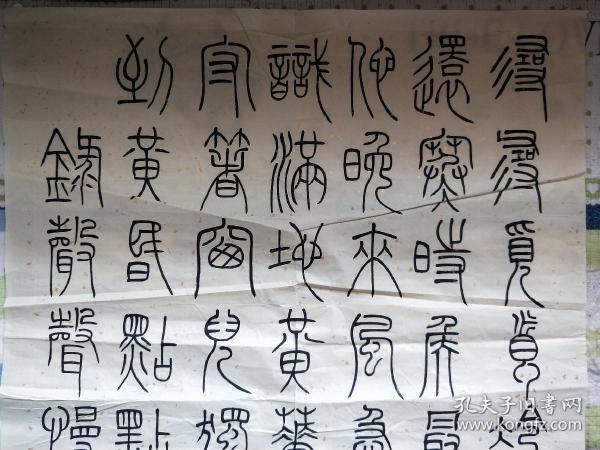 尋尋覓覓冷
還寒時候最
他晚來風急
識滿地黃華
守著窗兒獨
到黃昏點點
錄聲聲慢
孔夫子旧书网
www.kongfz.com